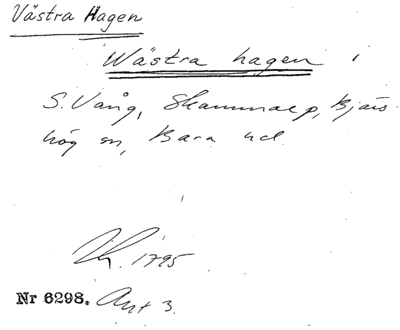 Västra Hagen
Wästra hagen i
S. Vång, Skammarp, Bjärs-
hög sn, Bara hd.
1795
Nr 6298. Akt 3.